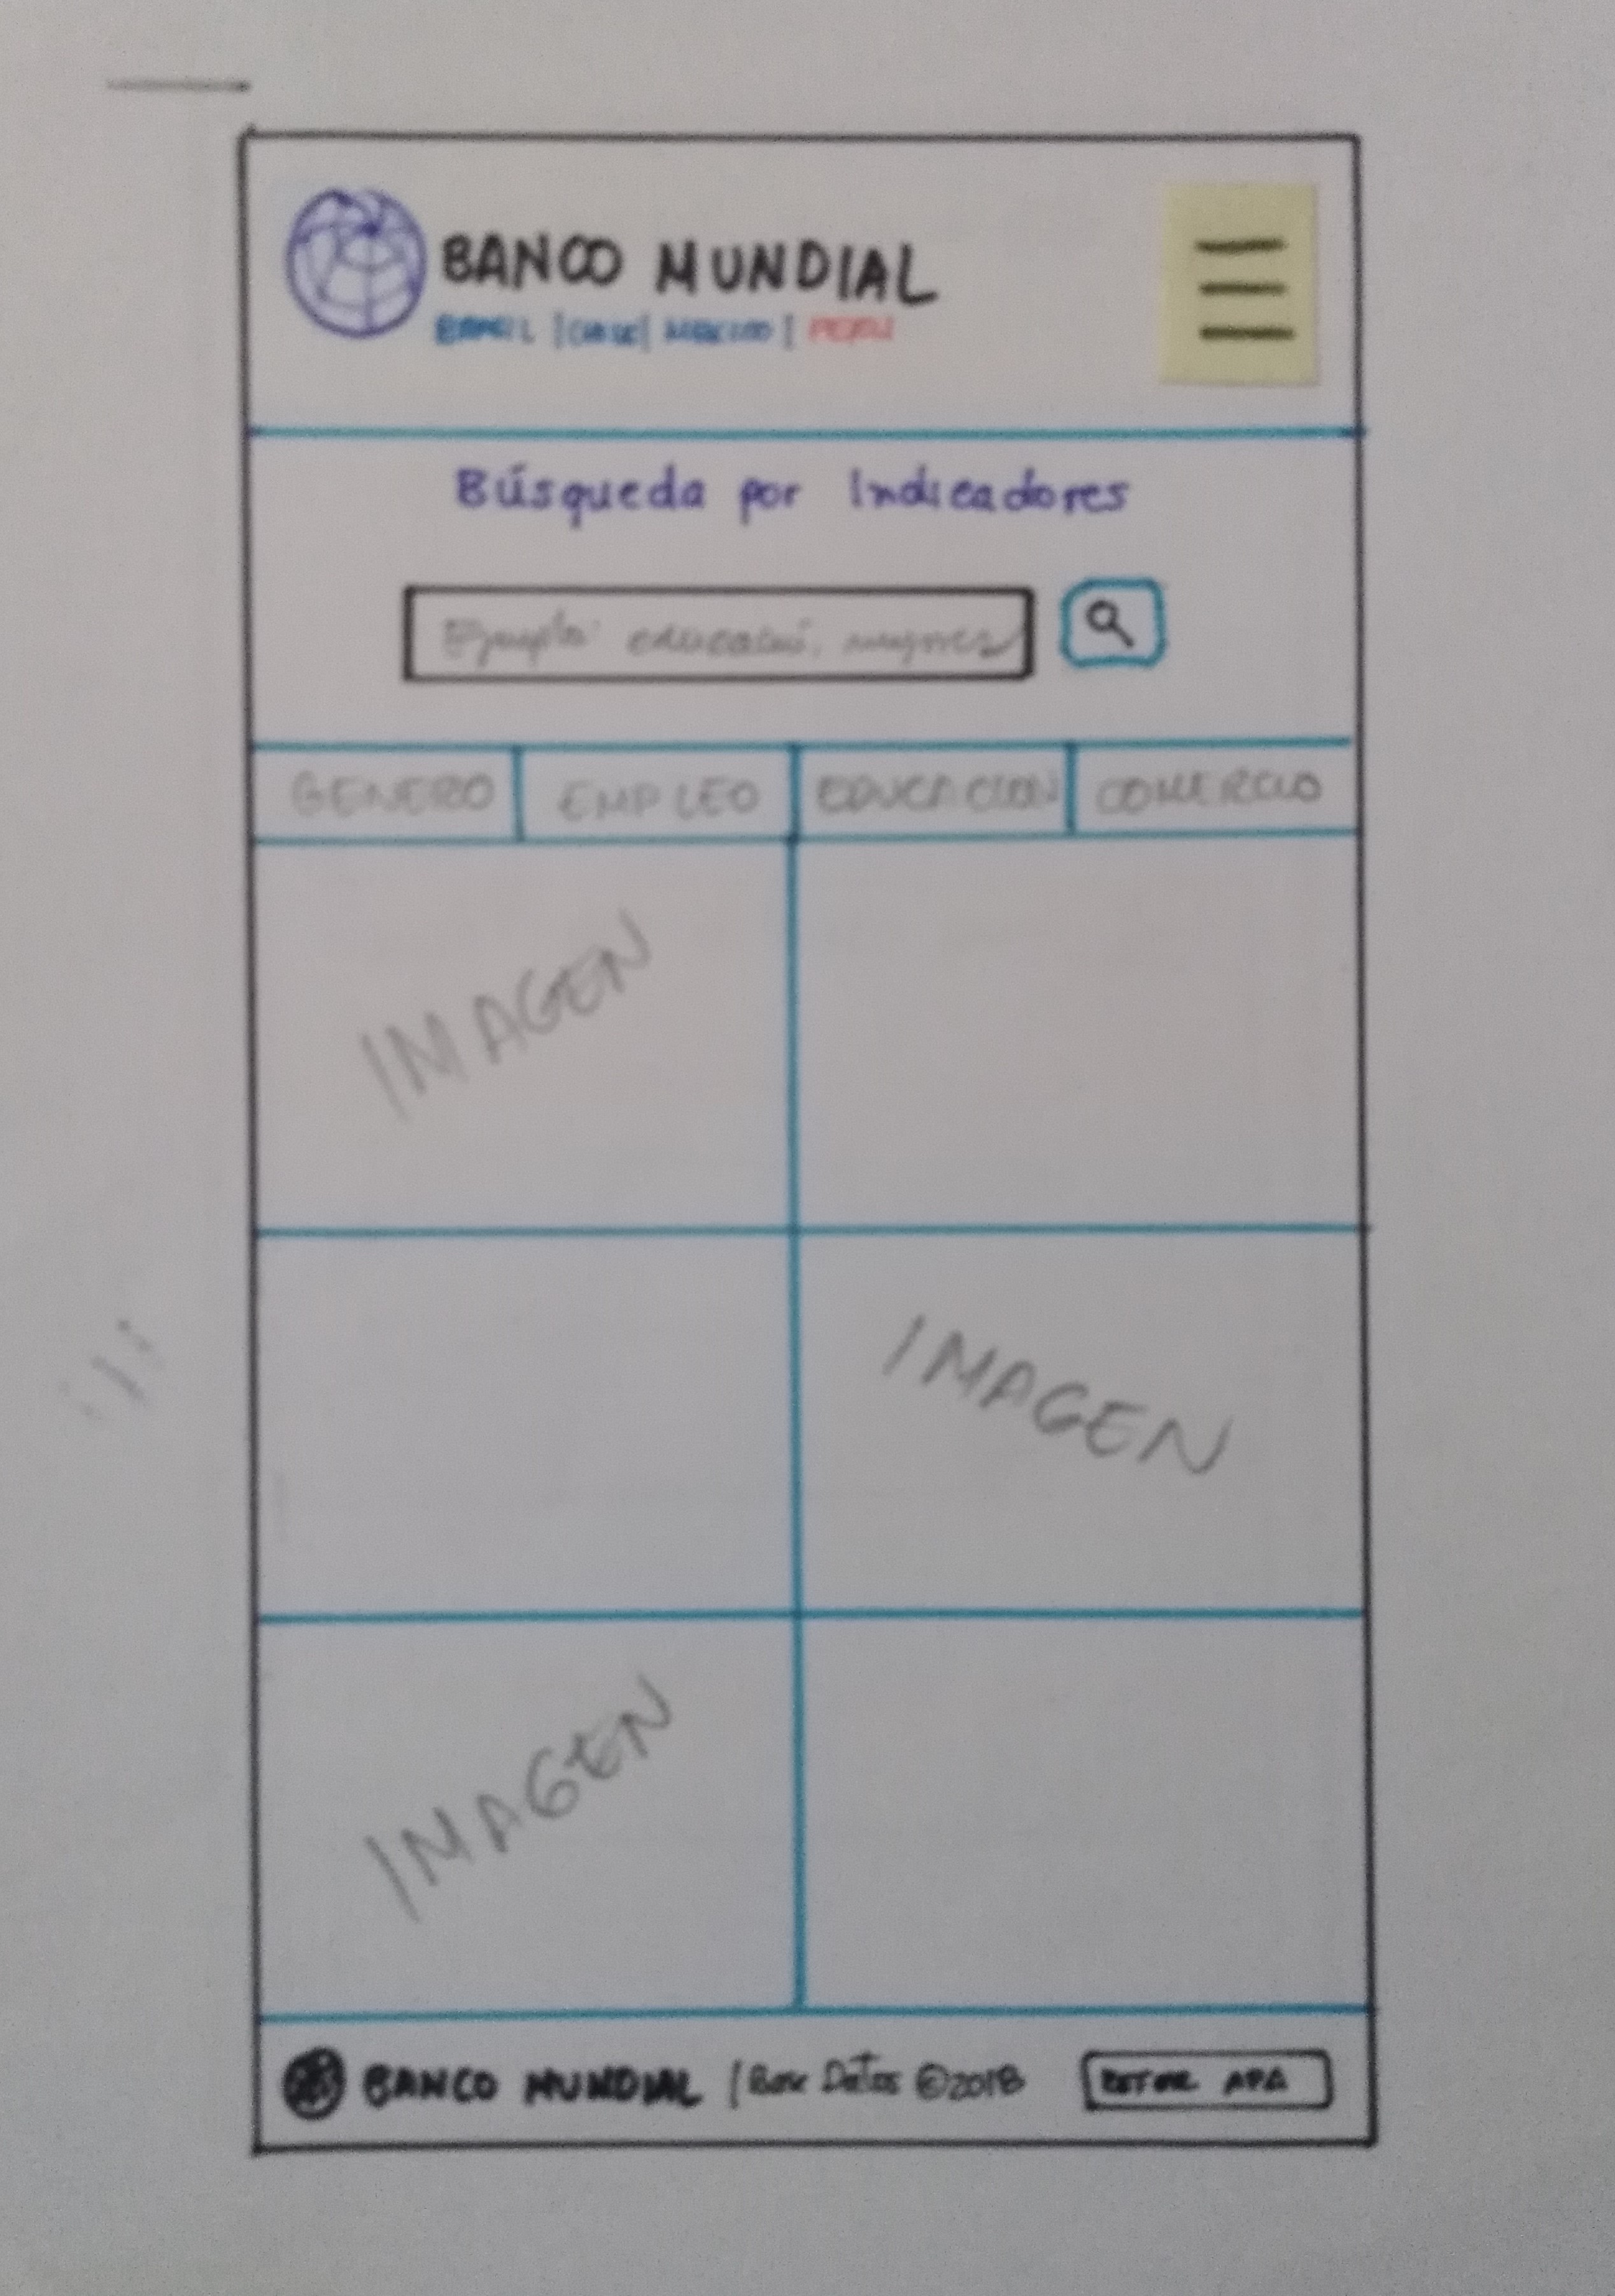 BANCO MUNDIAL
BRASIL | CHILE | MEXICO | PERU
Búsqueda por Indicadores
Ejemplo: educación, mujeres
GENERO EMPLEO EDUCACION COMERCIO
IMAGEN
IMAGEN
IMAGEN
BANCO MUNDIAL | Base Datos ©2018